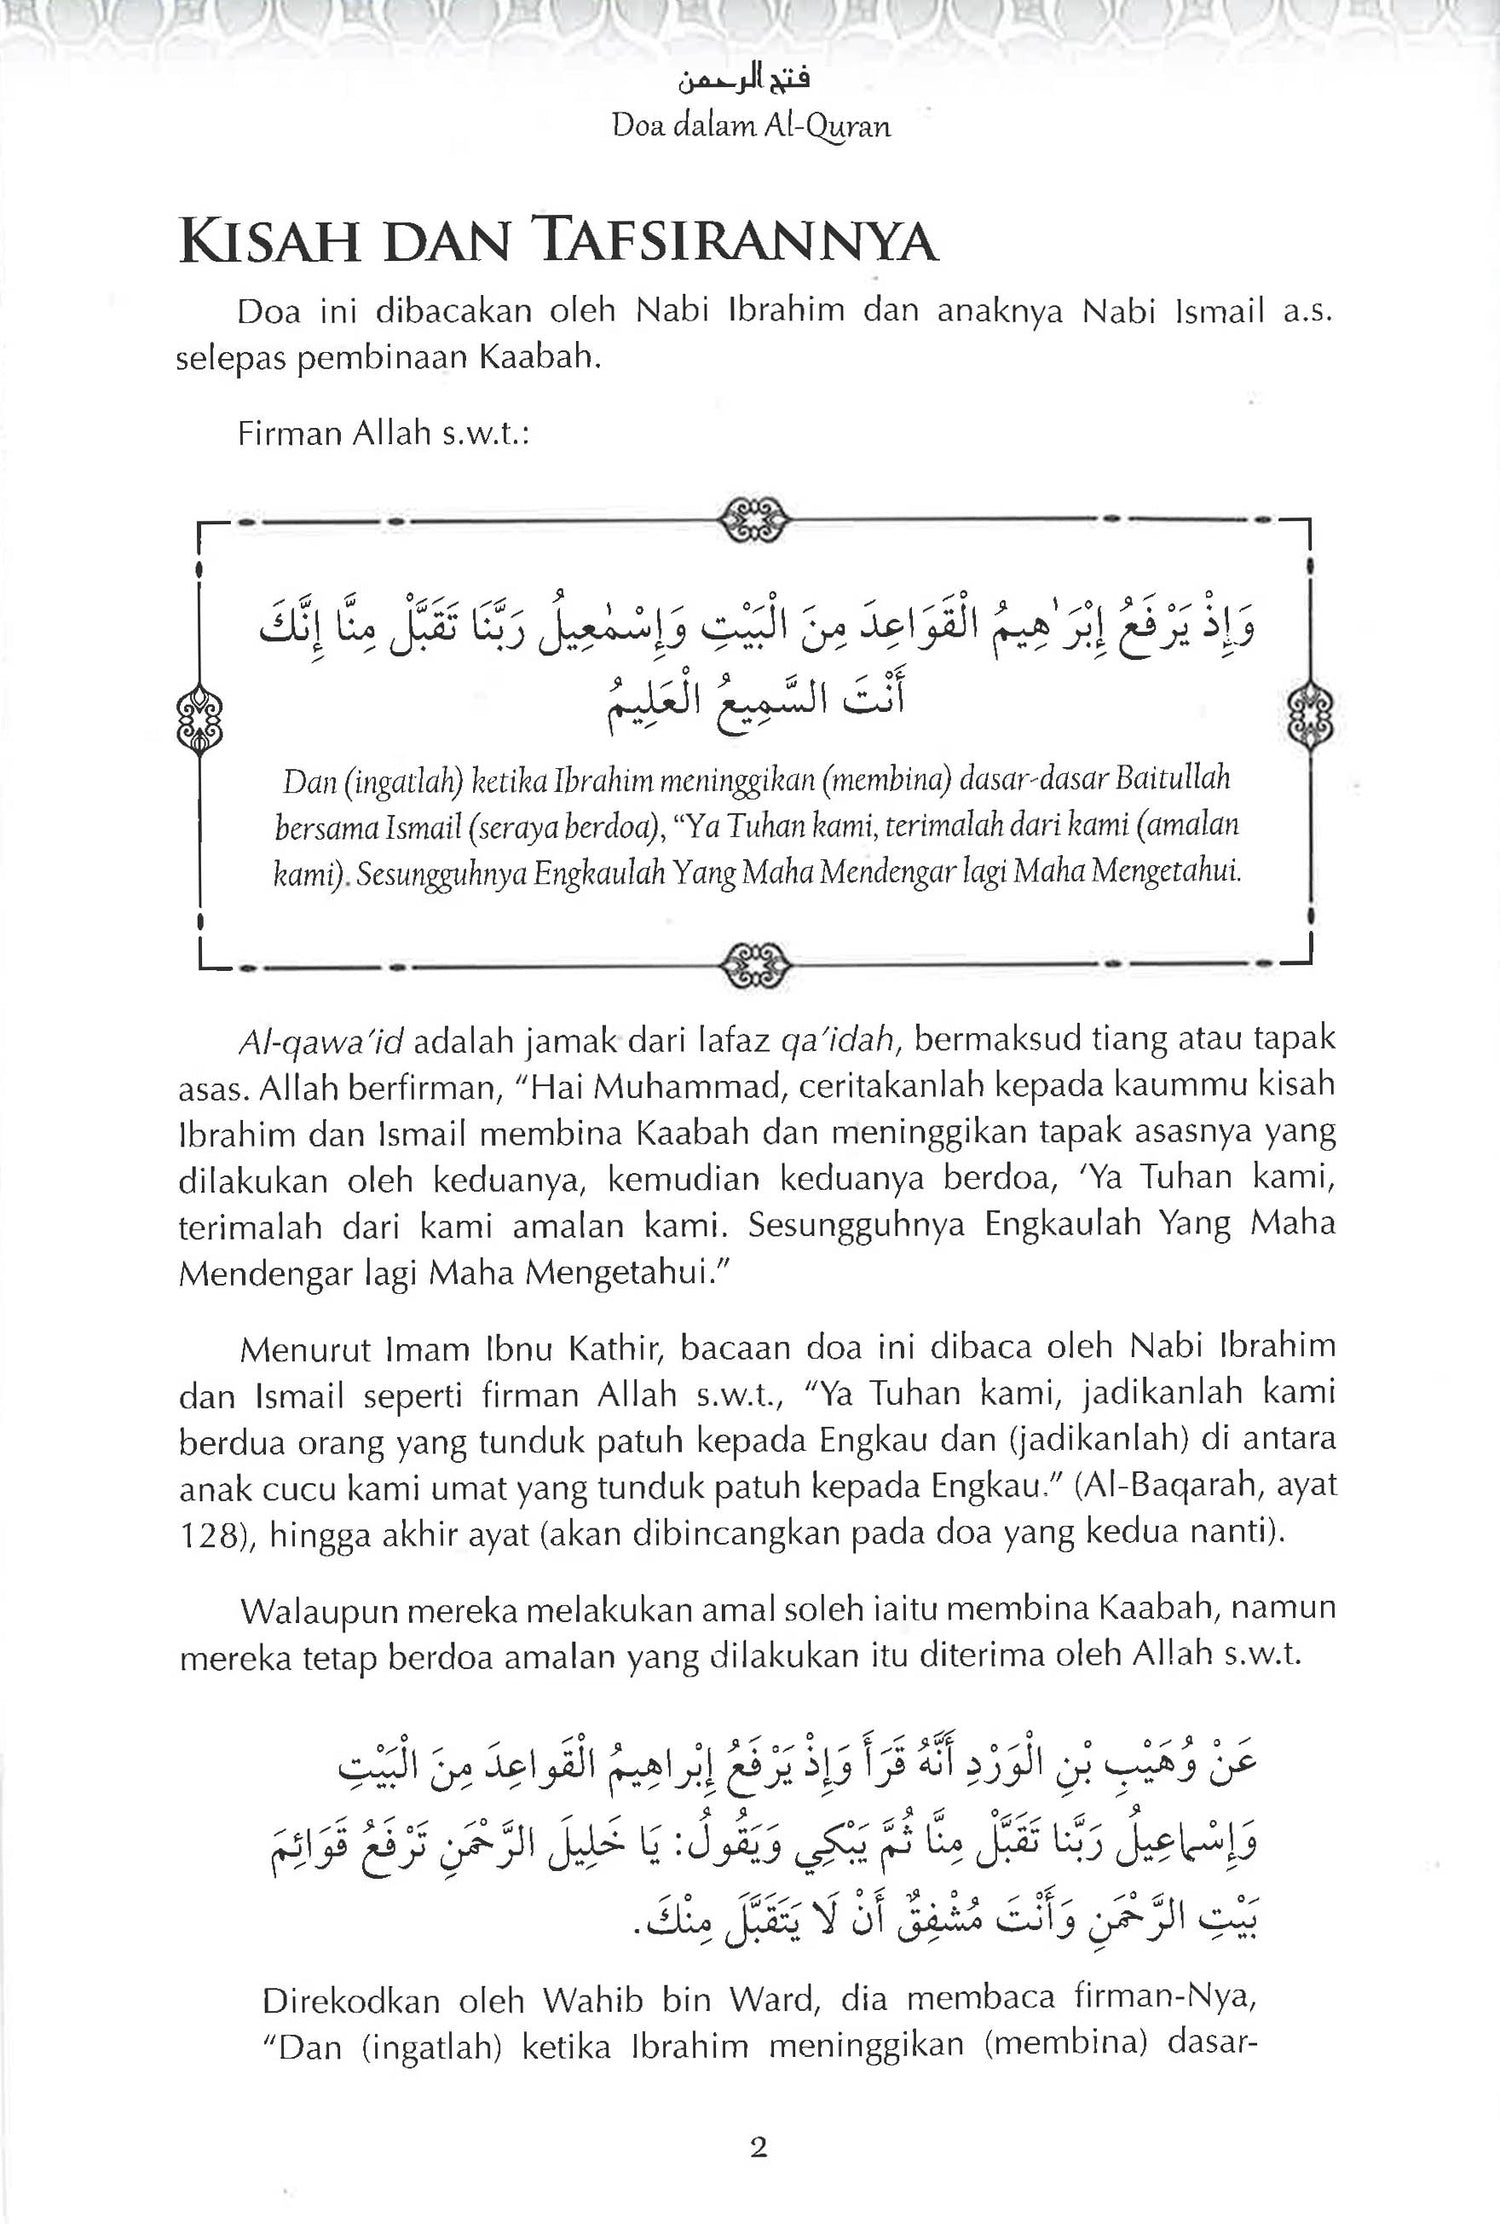 فتح الرحمن
Doa dalam Al-Quran
KISAH DAN TAFSIRANNYA
Doa ini dibacakan oleh Nabi Ibrahim dan anaknya Nabi Ismail a.s.
selepas pembinaan Kaabah.
Firman Allah s.w.t.:
وَإِذْ يَرْفَعُ إِبْرَٰهِيمُ الْقَوَاعِدَ مِنَ الْبَيْتِ وَإِسْمَٰعِيلُ رَبَّنَا تَقَبَّلْ مِنَّا إِنَّكَ
أَنْتَ السَّمِيعُ الْعَلِيمُ
Dan (ingatlah) ketika Ibrahim meninggikan (membina) dasar-dasar Baitullah
bersama Ismail (seraya berdoa), “Ya Tuhan kami, terimalah dari kami (amalan
kami). Sesungguhnya Engkaulah Yang Maha Mendengar lagi Maha Mengetahui.
Al-qawa’id adalah jamak dari lafaz qa’idah, bermaksud tiang atau tapak
asas. Allah berfirman, “Hai Muhammad, ceritakanlah kepada kaummu kisah
Ibrahim dan Ismail membina Kaabah dan meninggikan tapak asasnya yang
dilakukan oleh keduanya, kemudian keduanya berdoa, ‘Ya Tuhan kami,
terimalah dari kami amalan kami. Sesungguhnya Engkaulah Yang Maha
Mendengar lagi Maha Mengetahui.”
Menurut Imam Ibnu Kathir, bacaan doa ini dibaca oleh Nabi Ibrahim
dan Ismail seperti firman Allah s.w.t., “Ya Tuhan kami, jadikanlah kami
berdua orang yang tunduk patuh kepada Engkau dan (jadikanlah) di antara
anak cucu kami umat yang tunduk patuh kepada Engkau.” (Al-Baqarah, ayat
128), hingga akhir ayat (akan dibincangkan pada doa yang kedua nanti).
Walaupun mereka melakukan amal soleh iaitu membina Kaabah, namun
mereka tetap berdoa amalan yang dilakukan itu diterima oleh Allah s.w.t.
عَنْ وُهَيْبِ بْنِ الْوَرْدِ أَنَّهُ قَرَأَ وَإِذْ يَرْفَعُ إِبْراهِيمُ الْقَواعِدَ مِنَ الْبَيْتِ
وَإِسْماعِيلُ رَبَّنا تَقَبَّلْ مِنَّا ثُمَّ يَبْكِي وَيَقُولُ: يَا خَلِيلَ الرَّحْمَنِ تَرْفَعُ قَوَائِمَ
بَيْتِ الرَّحْمَنِ وَأَنْتَ مُشْفِقٌ أَنْ لَا يَتَقَبَّلَ مِنْكَ.
Direkodkan oleh Wahib bin Ward, dia membaca firman-Nya,
“Dan (ingatlah) ketika Ibrahim meninggikan (membina) dasar-
2